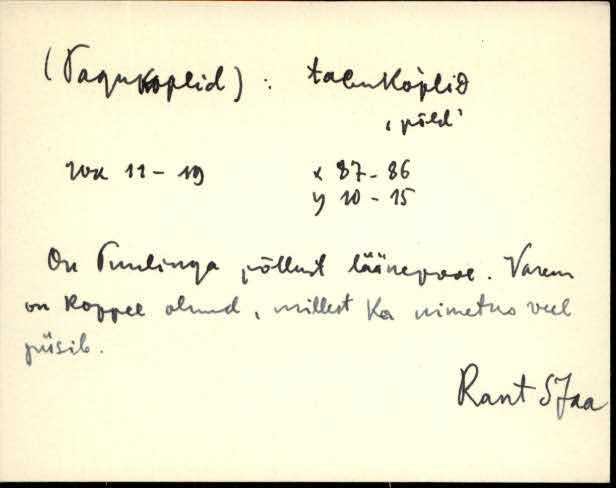 (Tagukoplid) : tabukȯplid
'põld'
Wx 11 - 19 x 87 - 86
y 10 - 15
On Tuulinga põllust läänepool. Varem
on koppel olnud, millest ka nimetus veel
püsib.
Rant SJaa